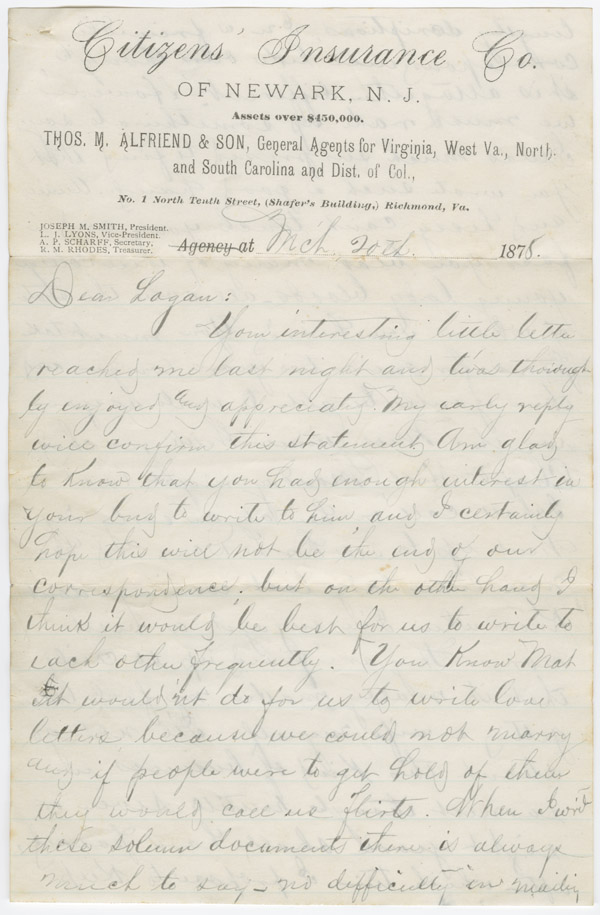 Citizens' Insurance Co.
OF NEWARK, N. J.
Assets over $450,000.
THOS. M. ALFRIEND & SON, General Agents for Virginia, West Va., North-
and South Carolina and Dist. of Col.,
No. 1 North Tenth Street, (Shafer's Building,) Richmond, Va.
JOSEPH M. SMITH, President.
L. J. LYONS, Vice-President.
A. P. SCHARFF, Secretary,
R. M. RHODES, Treasurer.
Agency at Mch. 20th. 1878.
Dear Logan:
Your interesting little letter
reached me last night and twas thorough
ly enjoyed and appreciated. My early reply
will confirm this statement. Am glad
to know that you had enough interest in
your bud to write to him, and I certainly
hope this will not be the end of our
correspondence, but on the other hand I
think it would be best for us to write to
each other frequently. You know Mat
it would'nt do for us to write love
letters, because we could not marry
and if people were to get hold of them
they would call us flirts. When I
these solumn documents there is always
much to say - no difficulty in